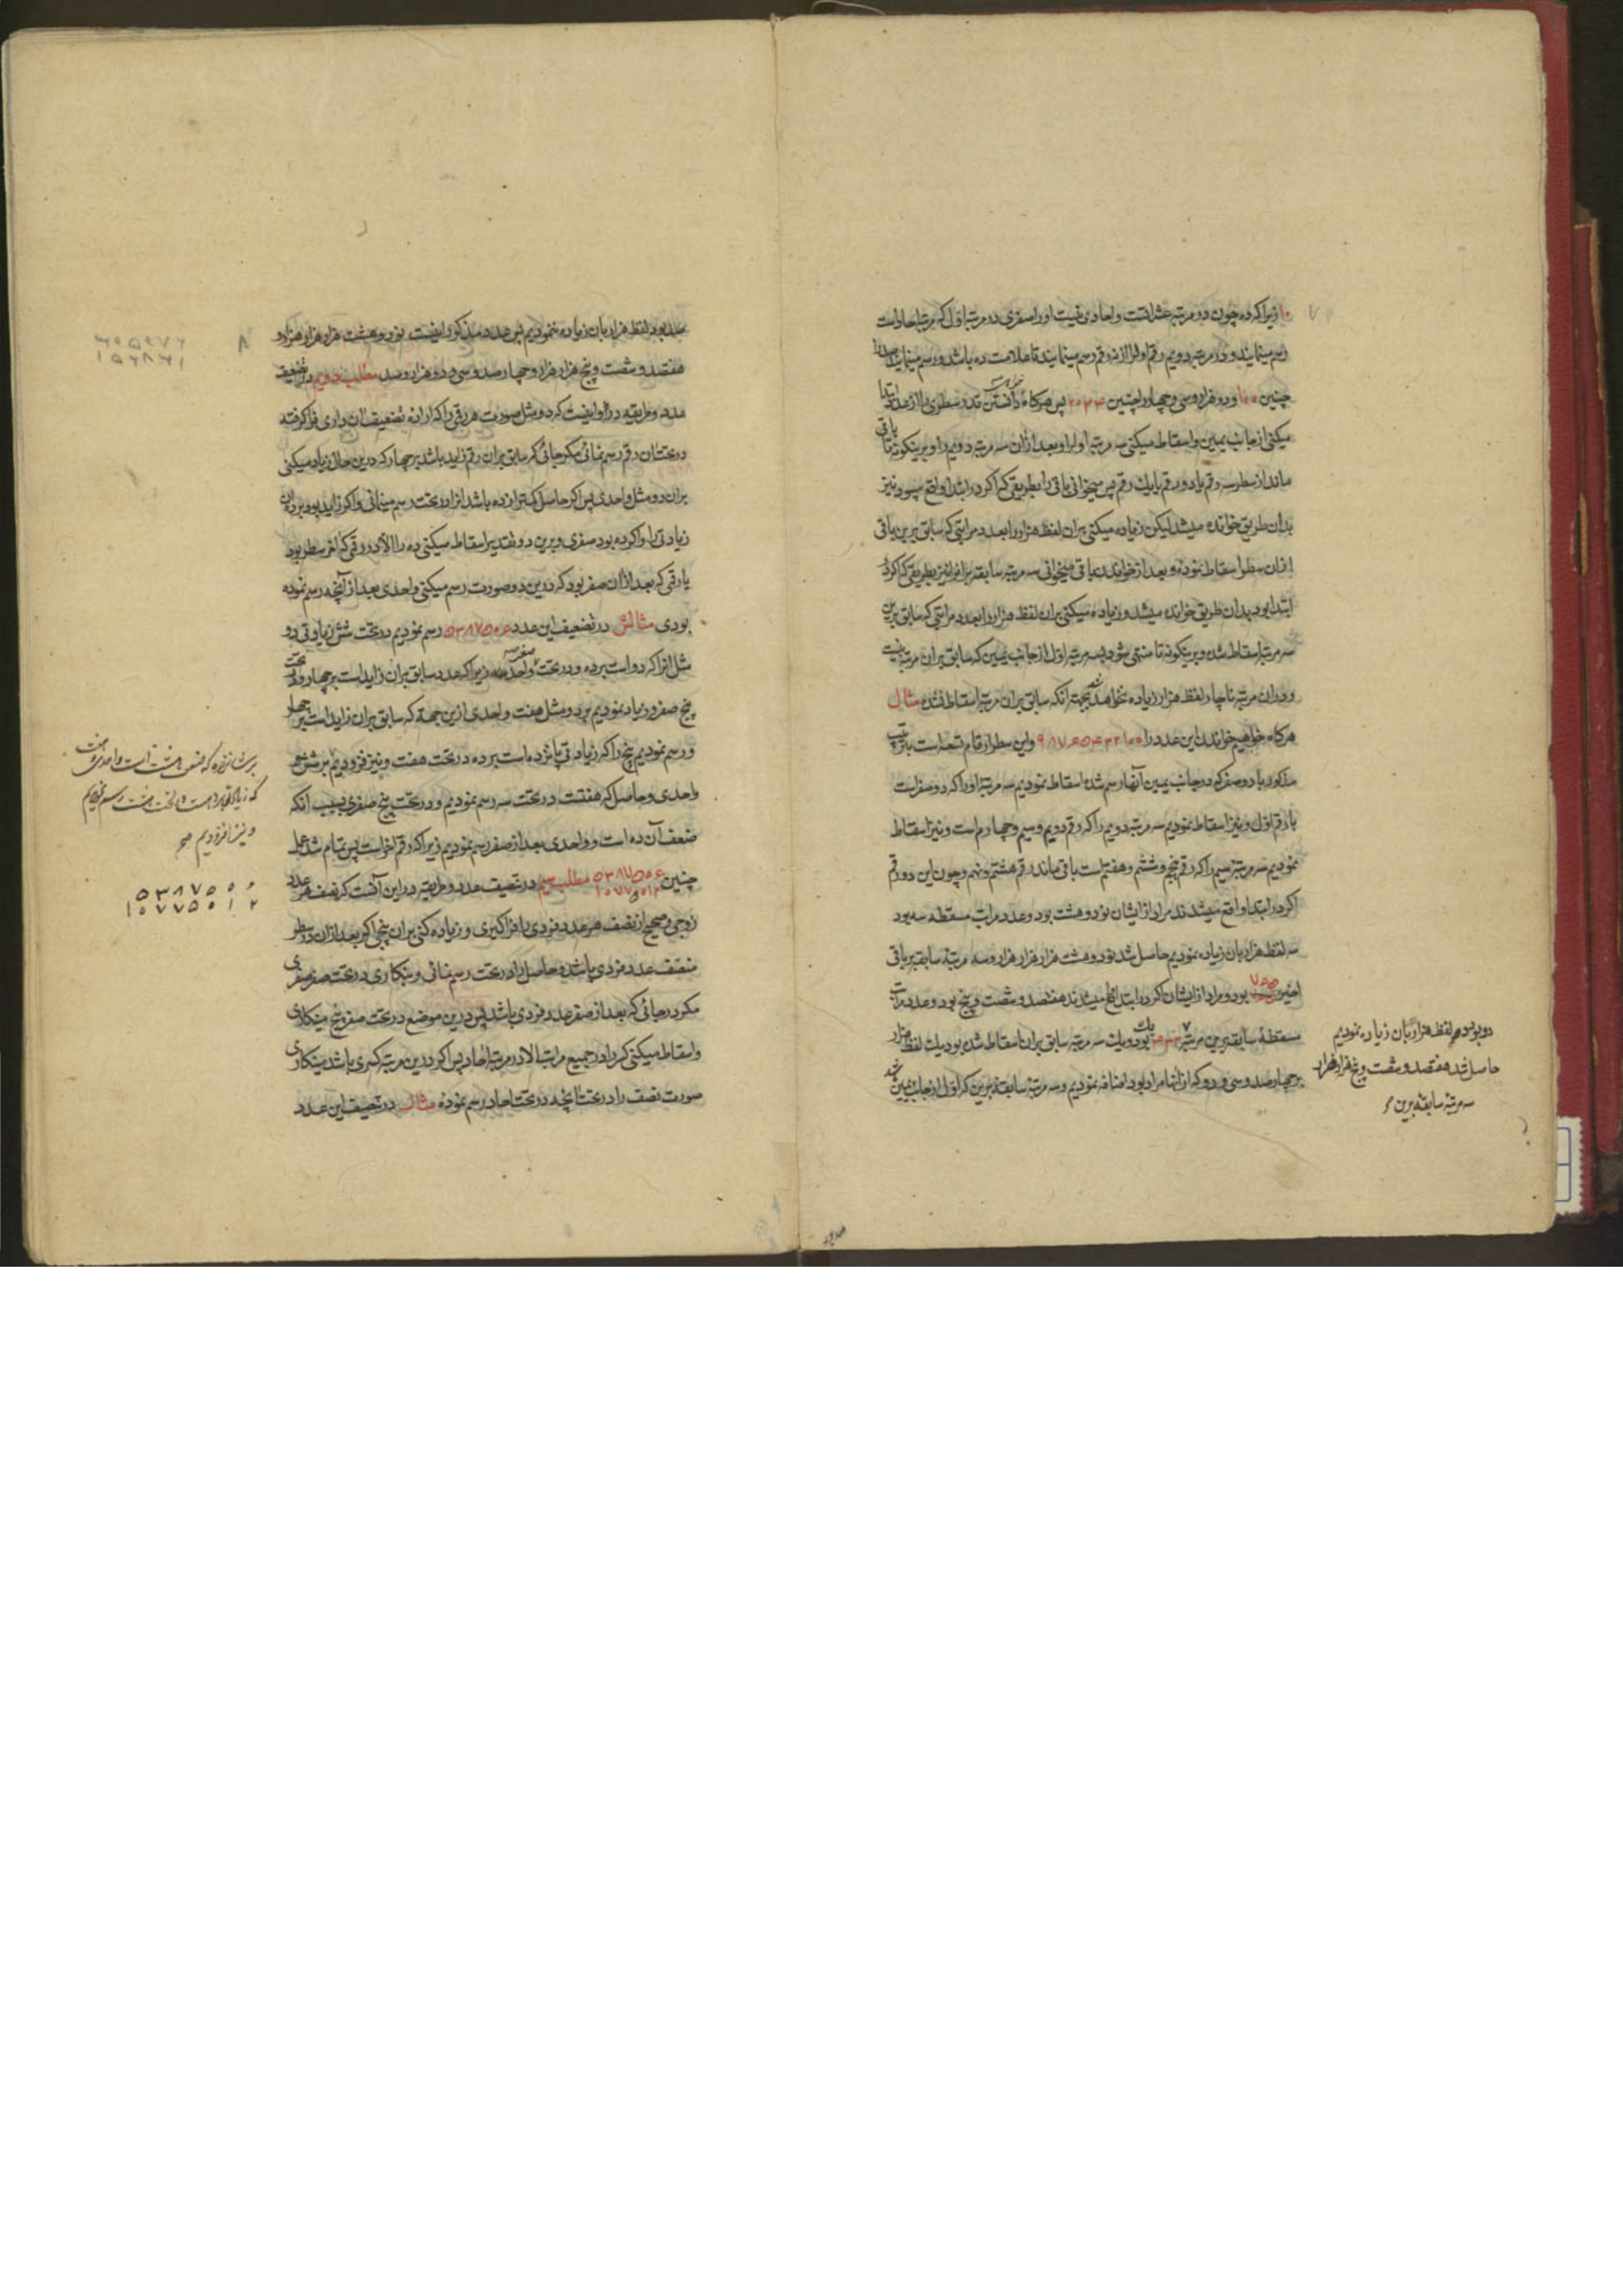 ۱۰ زیرا که ده چون در مرتبه عشراتست و احادی نیست او را صفری در مرتبه اول که مرتبه احاد است
رسم مینمایند و در مرتبه دویم رقم اول از نه رقم رسم مینمایند تا علامت ده باشد و رسم مینمایند صد را
چنین ۱۰۰ و دو هزار و سی و چهار را چنین ۲۰۳۴ پس هرکاه خواستی دانستن قدر سطری را از عدد ابتدا
میکنی از جانب یمین و اسقاط میکنی سه مرتبه اول را و بعد از آن سه مرتبه دویم را و برینکونه تا باقی
ماند از سطر سه رقم یا دو رقم یا یک رقم پس میخوانی باقی را بطریقی که اکر در ابتدا واقع میبود نیز
بدان طریق خوانده میشد لیکن زیاده میکنی بران لفظ هزار را بعدد مراتبی که سابق برین باقی
از آن سطر اسقاط نموده و بعد از خواندن باقی میخوانی سه مرتبه سابقه برانرا نیز بطریقی که اکر در
ابتدا بود بدان طریق خوانده میشد و زیاده میکنی بران لفظ هزار را بعدد مراتبی که سابق برین
سه مرتبه اسقاط شده و برینکونه تا منتهی شود بسه مرتبه اول از جانب یمین که سابق بران مرتبه نیست
و در ان مرتبه ناچار لفظ هزار زیاده نخواهد شد بجهة انکه سابق بران مرتبه اسقاط نشده مثال
هرکاه خواهیم خواندن این عدد را ۹۸۷۶۵۴۳۲۱۰۰ و این سطر ارقام تسعه است بترتیب
مذکور با دو صفر که در جانب یمین آنها رسم شده اسقاط نمودیم سه مرتبه اول را که دو صفر است
با رقم اول و نیز اسقاط نمودیم سه مرتبه دویم را که رقم دویم و سیم و چهارم است و نیز اسقاط
نمودیم سه مرتبه سیم را که رقم پنجم و ششم و هفتم است باقی ماند رقم هشتم و نهم و چون این دو رقم
اکر در ابتدا واقع میشدند مراد از ایشان نود و هشت بود و عدد مراتب مسقطه سه بود
سه لفظ هزار بان زیاده نمودیم حاصل شد نود و هشت هزار هزار هزار و سه مرتبه سابقه بر باقی
اخیر ۷۶۵ بود و مراد از ایشان اکر در ابتدا واقع میشدند هفتصد و شصت و پنج بود و عدد مراتب
مسقطه سابقه برین مرتبه بود و یک سه مرتبه سابق بران اسقاط شده بود یک لفظ هزار
بر چهارصد و سی و دو که از انها مراد بود اضافه نمودیم و سه مرتبه سابقه برین که اول از جانب یمین
دو بود دو لفظ هزار بان زیاده نمودیم
حاصل شد هفتصد و شصت و پنج هزار هزار
سه مرتبه سابقه برین
صد بود لفظ هزار بان زیاده ننمودیم پس عدد مذکور اینست نود و هشت هزار هزار هزار و
هفتصد و شصت و پنج هزار هزار و چهارصد و سی و دو هزار و صد مطلب دویم در تضعیف
عدد و طریقه در او اینست که دو مثل صورت هر رقمی را که اراده تضعیف ان داری فرا کرفته
در تحت ان رقم رسم نمائی مکر جائی که سابق بران رقم زاید باشد بر چهار که درین حال زیاد میکنی
بران دو مثل واحدی پس اکر حاصل کمتر از ده باشد انرا در تحت رسم مینمائی و اکر زاید بود بر ده ان
زیادتی را و اکر ده بود صفری و برین دو تقدیر اسقاط میکنی ده را الا در رقمی که اخر سطر بود
یا رقمی که بعد از ان صفر بود که درین دو صورت رسم میکنی واحدی بعد از آنچه رسم نموده
بودی مثالش در تضعیف این عدد ۵۳۸۷۵۰۶ رسم نمودیم در تحت شش زیادتی دو
مثل انرا که دو است بر ده و در تحت صفر واحد زیرا که عدد سابق بران زاید است بر چهار و در تحت
پنج صفر و زیاد نمودیم بر دو مثل هفت واحدی ازین جهة که سابق بران زاید است بر چهار
و رسم نمودیم پنج را که زیادتی پانزده است بر ده در تحت هفت و نیز فزودیم بر شش
واحدی و حاصل که هفتست در تحت سه رسم نمودیم و در تحت پنج صفری بسبب انکه
ضعف آن ده است و واحدی بعد از صفر رسم نمودیم زیرا که رقم اخر است پس تمام شد عمل
چنین ۵۳۸۷۵۰۶ ۱۰۷۷۵۰۱۲ مطلب سیم در تنصیف عدد و طریقه در این آنست که نصف هر عدد
زوجی و صحیح از نصف هر عدد فردی را فرا کیری و زیاده کنی بران پنجی اکر بعد از ان در سطر
منصف عدد فردی باشد و حاصل را در تحت رسم نمائی و بنکاری در تحت صفر صفری
مکر در جائی که بعد از صفر عدد فردی باشد پس درین موضع در تحت صفر پنج مینکاری
و اسقاط میکنی کسر را در جمیع مراتب الا در مرتبه احاد پس اکر درین مرتبه کسری باشد مینکاری
صورت نصف را در تحت انچه در تحت احاد رسم نموده مثال در تنصیف این عدد
بر شانزده که ضعف هشت است واحدی و هفت
که زیادتی بر ده است در تحت هشت رسم نمودیم
و نیز افزودیم صح
۵۳۸۷۵۰۶
۱۰۷۷۵۰۱۲